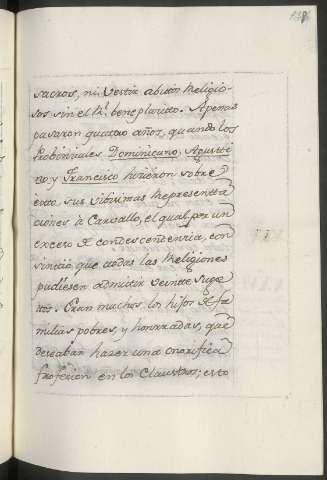 sacros, ni vestir abitos Religio-
sos sin el Rl. beneplacito. Apenas
pasaron quatro años, quando los
Probinciales Dominicano, Agusti-
no y Francisco hicieron sobre
esto sus vibisimas representa
ciones à Carvallo, el qual por un
exceso de condescendencia, con
sintió que todas las Religiones
pudiesen admitir veinte suge
tos. Eran muchos los hijos de fa
milias pobres, y honrradas, que
deseaban hazer una
profesion en los Claustros; esto